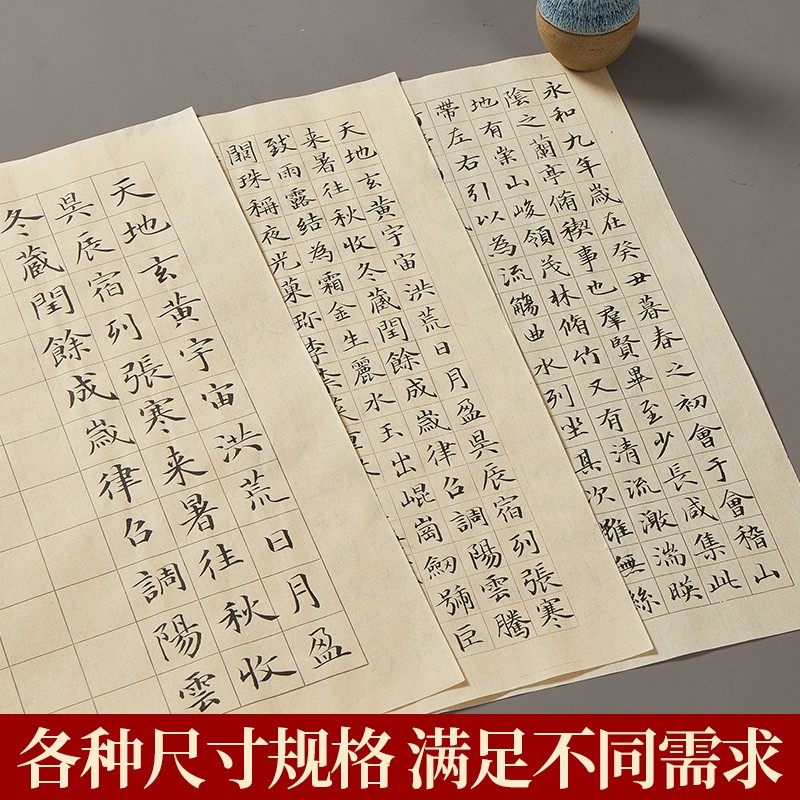 永和九年歲在癸丑暮春之初會于會稽山
陰之蘭亭脩稧事也羣賢畢至少長咸集此
地有崇山峻領茂林脩竹又有清流激湍暎
帶左右引以為流觴曲水列坐其次雖無絲
天地玄黄宇宙洪荒日月盈吳辰宿列張寒
来暑往秋收冬藏閏餘成歲律召調陽雲騰
致雨露結為霜金生麗水玉出崐崗劒號巨
闕珠稱夜光菓珎李柰菜重
天地玄黄宇宙洪荒日月盈
吳辰宿列張寒来暑往秋收
冬藏閏餘成歲律召調陽雲
各种尺寸规格 满足不同需求